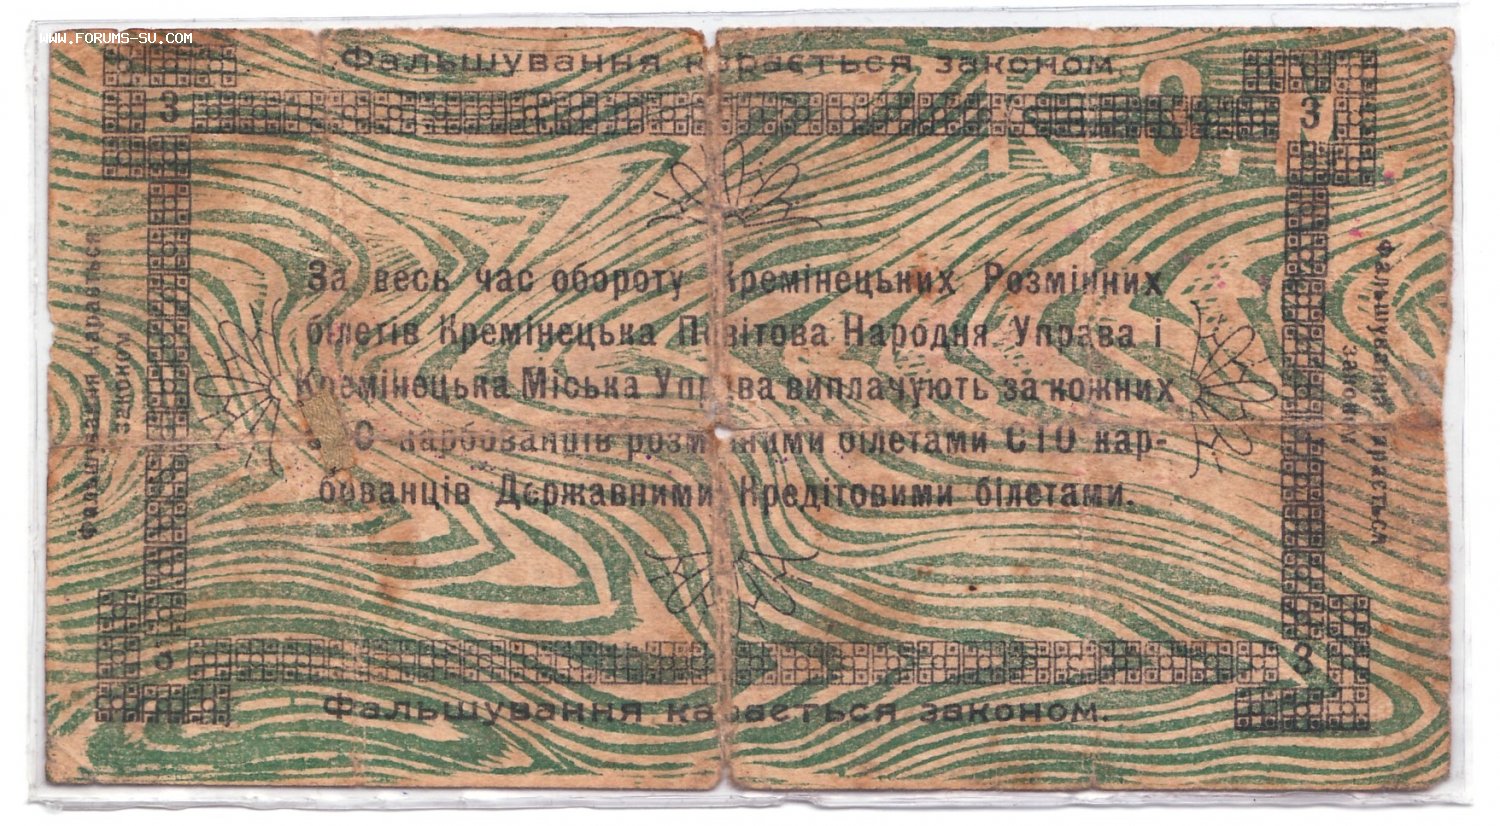 WWW.FORUMS-SU.COM
Фальшування карається законом.
К. О.
3
3
За весь час обороту Кремінецьких Розмінних
білетів Кремінецька Повітова Народня Управа і
Кремінецька Міська Управа виплачують за кожних
карбованців розмінними білетами СТО кар-
бованців Державними Кредітовими білетами.
Фальшування карається
законом
Фальшування карається
законом
3
3
Фальшування карається законом.